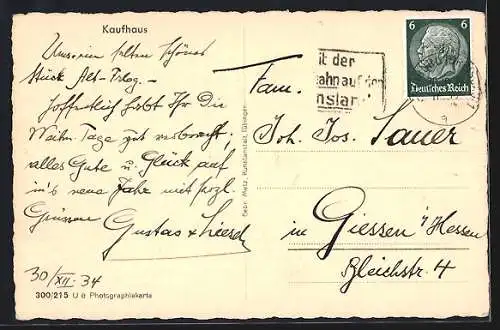 Kaufhaus
Unseren selten schönes
Stück Alt-
hoffentlich habt Ihr Die
Weihn. Tage gut verbracht,
alles Gute u. Glück auf
in's neue Jahr mit herzl.
Grüssen
Gustav + Liesel
30/XII. 34
300/215 U ö Photographiekarte
Gebr. Metz, Kunstanstalt, Tübingen
it der
ahn auf den
nsland
6 6
Deutsches Reich
Fam.
Joh. Jos. Sauer
in Giessen / Hessen
Bleichstr. 4